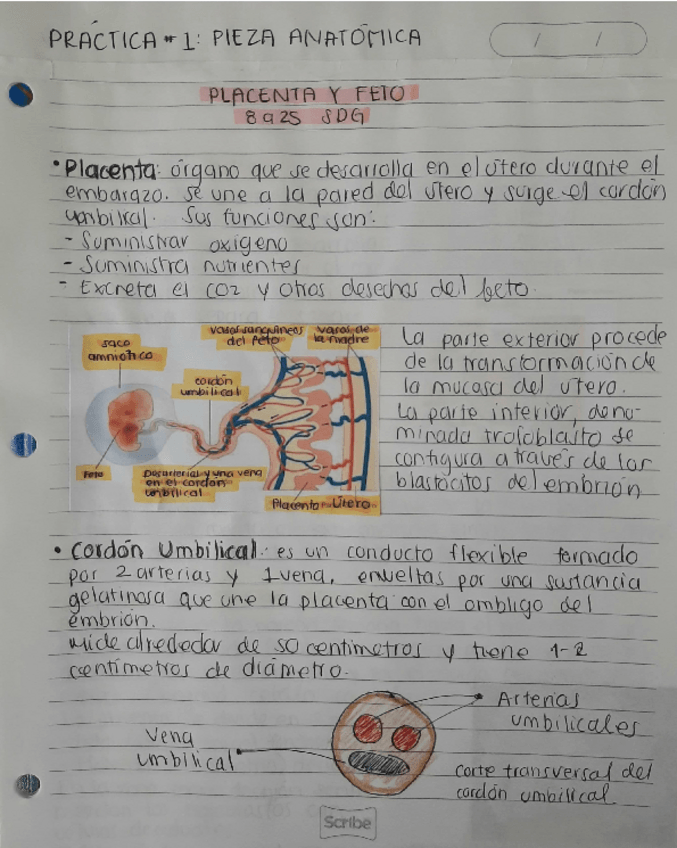 PRÁCTICA # 1: PIEZA ANATÓMICA
/ /
PLACENTA Y FETO
8 a 25 SDG
• Placenta: órgano que se desarrolla en el útero durante el
embarazo. Se une a la pared del útero y surge el cordón
umbilical. Sus funciones son:
- Suministrar oxígeno
- Suministra nutrientes
- Excreta el CO2 y otros desechos del feto.
saco
amniótico
vasos sanguíneos
del feto
vasos de
la madre
cordón
umbilical
Feto
Dos arterias y una vena
en el cordón
umbilical
Placenta
Útero
La parte exterior procede
de la transformación de
la mucosa del útero.
La parte interior, deno-
minada trofoblasto se
configura a través de los
blastocitos del embrión
• Cordón Umbilical: es un conducto flexible formado
por 2 arterias y 1 vena, envueltas por una sustancia
gelatinosa que une la placenta con el ombligo del
embrión.
Mide alrededor de 50 centímetros y tiene 1-2
centímetros de diámetro.
Arterias
umbilicales
Vena
umbilical
corte transversal del
cordón umbilical.
Scribe